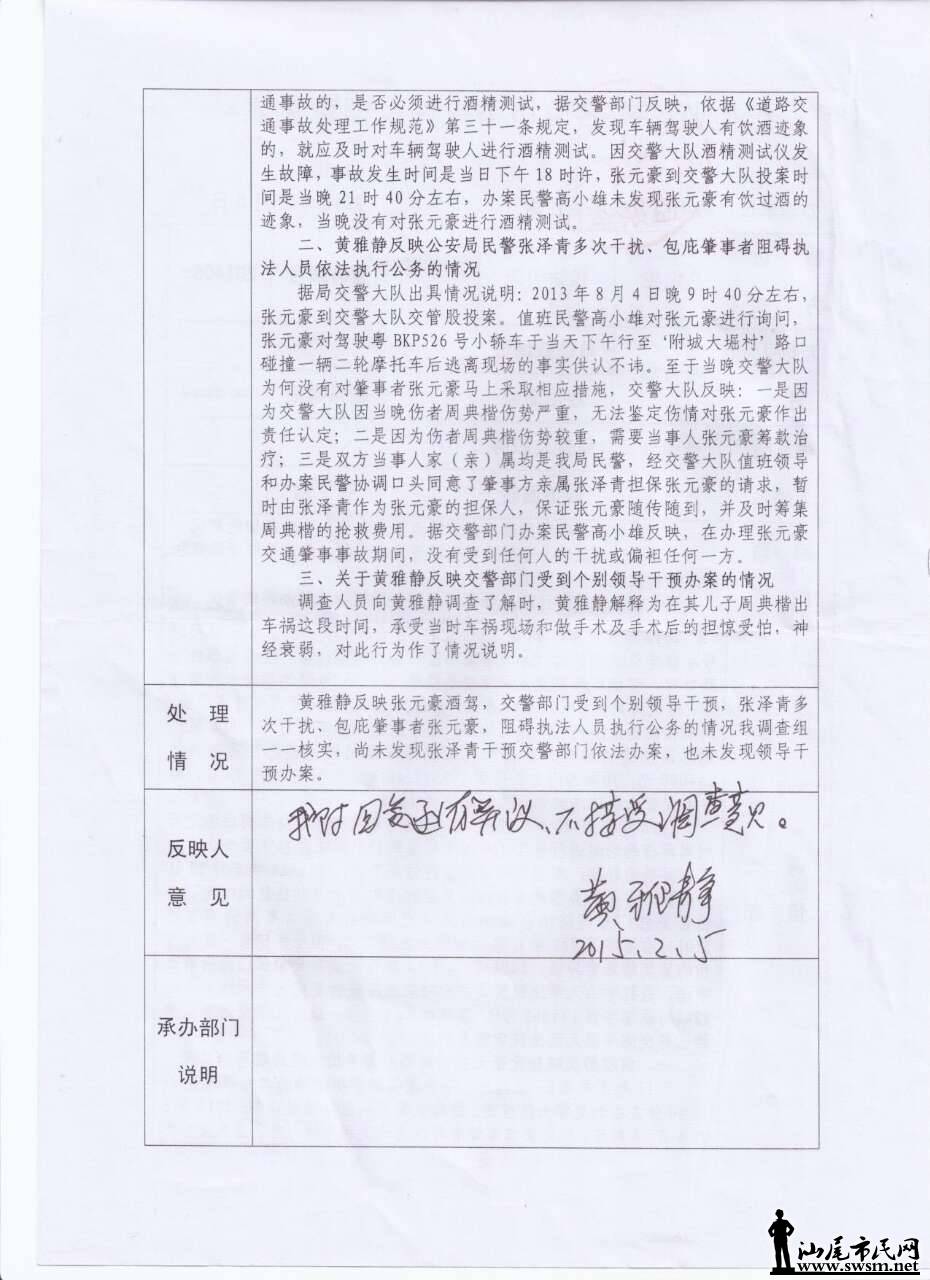 通事故的，是否必须进行酒精测试，据交警部门反映，依据《道路交
通事故处理工作规范》第三十一条规定，发现车辆驾驶人有饮酒迹象
的，就应及时对车辆驾驶人进行酒精测试。因交警大队酒精测试仪发
生故障，事故发生时间是当日下午18时许，张元豪到交警大队投案时
间是当晚21时40分左右，办案民警高小雄未发现张元豪有饮过酒的
迹象，当晚没有对张元豪进行酒精测试。
二、黄雅静反映公安局民警张泽青多次干扰、包庇肇事者阻碍执
法人员依法执行公务的情况
据局交警大队出具情况说明：2013年8月4日晚9时40分左右，
张元豪到交警大队交管股投案。值班民警高小雄对张元豪进行询问，
张元豪对驾驶粤BKP526号小轿车于当天下午行至‘附城大堀村’路口
碰撞一辆二轮摩托车后逃离现场的事实供认不讳。至于当晚交警大队
为何没有对肇事者张元豪马上采取相应措施，交警大队反映：一是因
为交警大队因当晚伤者周典楷伤势严重，无法鉴定伤情对张元豪作出
责任认定；二是因为伤者周典楷伤势较重，需要当事人张元豪筹款治
疗；三是双方当事人家（亲）属均是我局民警，经交警大队值班领导
和办案民警协调口头同意了肇事方亲属张泽青担保张元豪的请求，暂
时由张泽青作为张元豪的担保人，保证张元豪随传随到，并及时筹集
周典楷的抢救费用。据交警部门办案民警高小雄反映，在办理张元豪
交通肇事事故期间，没有受到任何人的干扰或偏袒任何一方。
三、关于黄雅静反映交警部门受到个别领导干预办案的情况
调查人员向黄雅静调查了解时，黄雅静解释为在其儿子周典楷出
车祸这段时间，承受当时车祸现场和做手术及手术后的担惊受怕，神
经衰弱，对此行为作了情况说明。
处 理
情 况
黄雅静反映张元豪酒驾，交警部门受到个别领导干预，张泽青多
次干扰、包庇肇事者张元豪，阻碍执法人员执行公务的情况我调查组
一一核实，尚未发现张泽青干预交警部门依法办案，也未发现领导干
预办案。
反映人
意 见
我对回复函有异议、不接受调查意见。
黄雅静
2015.2.5
承办部门
说明
汕尾市民网
www.swsm.net